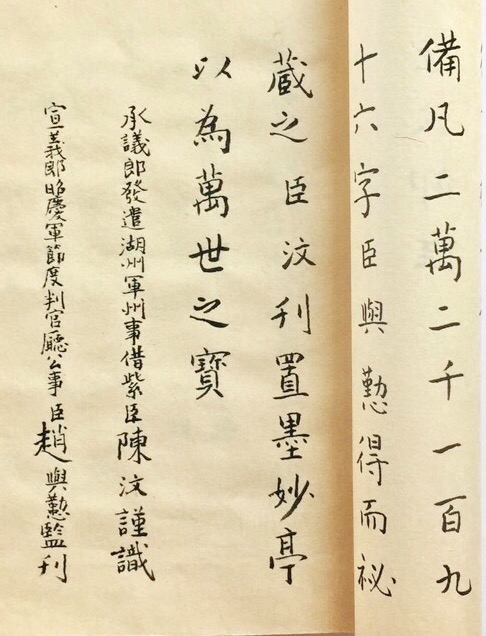 備凡二萬二千一百九
十六字臣與懃得而祕
蔵之臣汶刊置墨妙亭
以為萬世之寳
承議郎發遣湖州軍州事借紫臣陳汶謹識
宣義郎昭慶軍節度判官廳公事臣趙與懃監刊